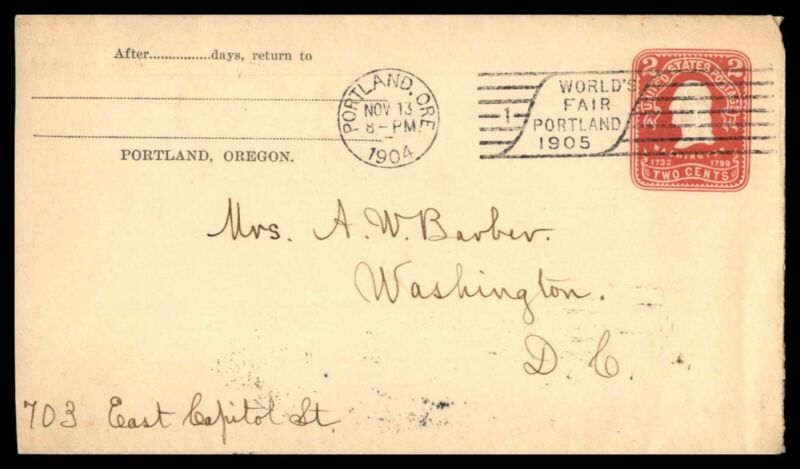 After..............days, return to
PORTLAND, OREGON.
PORTLAND, ORE
NOV 13
8-PM
1904
1
WORLD'S
FAIR
PORTLAND
1905
2 2
UNITED STATES POSTAGE
1732 1799
TWO CENTS
Mrs. A. W. Barber.
Washington.
D. C.
703 East Capitol St.